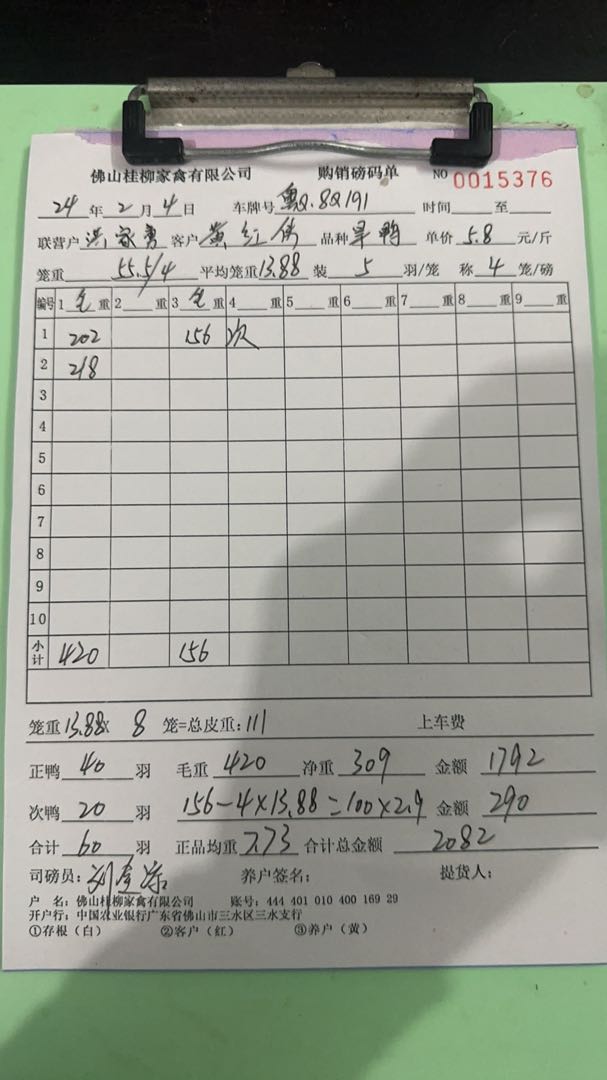 佛山桂柳家禽有限公司 购销磅码单 NO 0015376
24 年 2 月 4 日 车牌号 粤Q.8Q191 时间 至
联营户 洪家勇 客户 黄红伟 品种 旱鸭 单价 5.8 元/斤
笼重 55.5/4 平均笼重 13.88 装 5 羽/笼 称 4 笼/磅
编号 1 毛 重 2 重 3 毛 重 4 重 5 重 6 重 7 重 8 重 9 重
1 202 156 次
2 218
3
4
5
6
7
8
9
10
小计 420 156
笼重 13.88X 8 笼=总皮重: 111 上车费
正鸭 40 羽 毛重 420 净重 309 金额 1792
次鸭 20 羽 156-4×13.88=100×2.9 金额 290
合计 60 羽 正品均重 7.73 合计总金额 2082
司磅员: 刘 养户签名: 提货人:
户 名: 佛山桂柳家禽有限公司 账号: 444 401 010 400 169 29
开户行: 中国农业银行广东省佛山市三水区三水支行
①存根（白） ②客户（红） ③养户（黄）